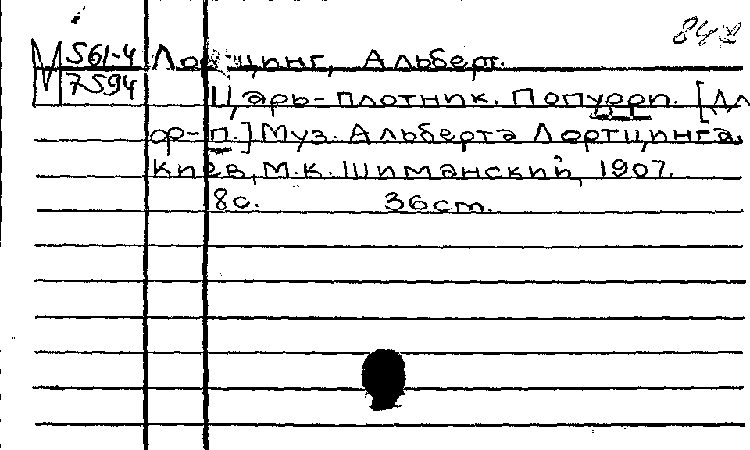 842
М 561-4 Лортцинг, Альберт.
7594
Царь-плотник. Попурри. [Дл
ф-п.] Муз. Альберта Лортцинга.
Киев, М.К. Шиманский, 1907.
8с. 36см.